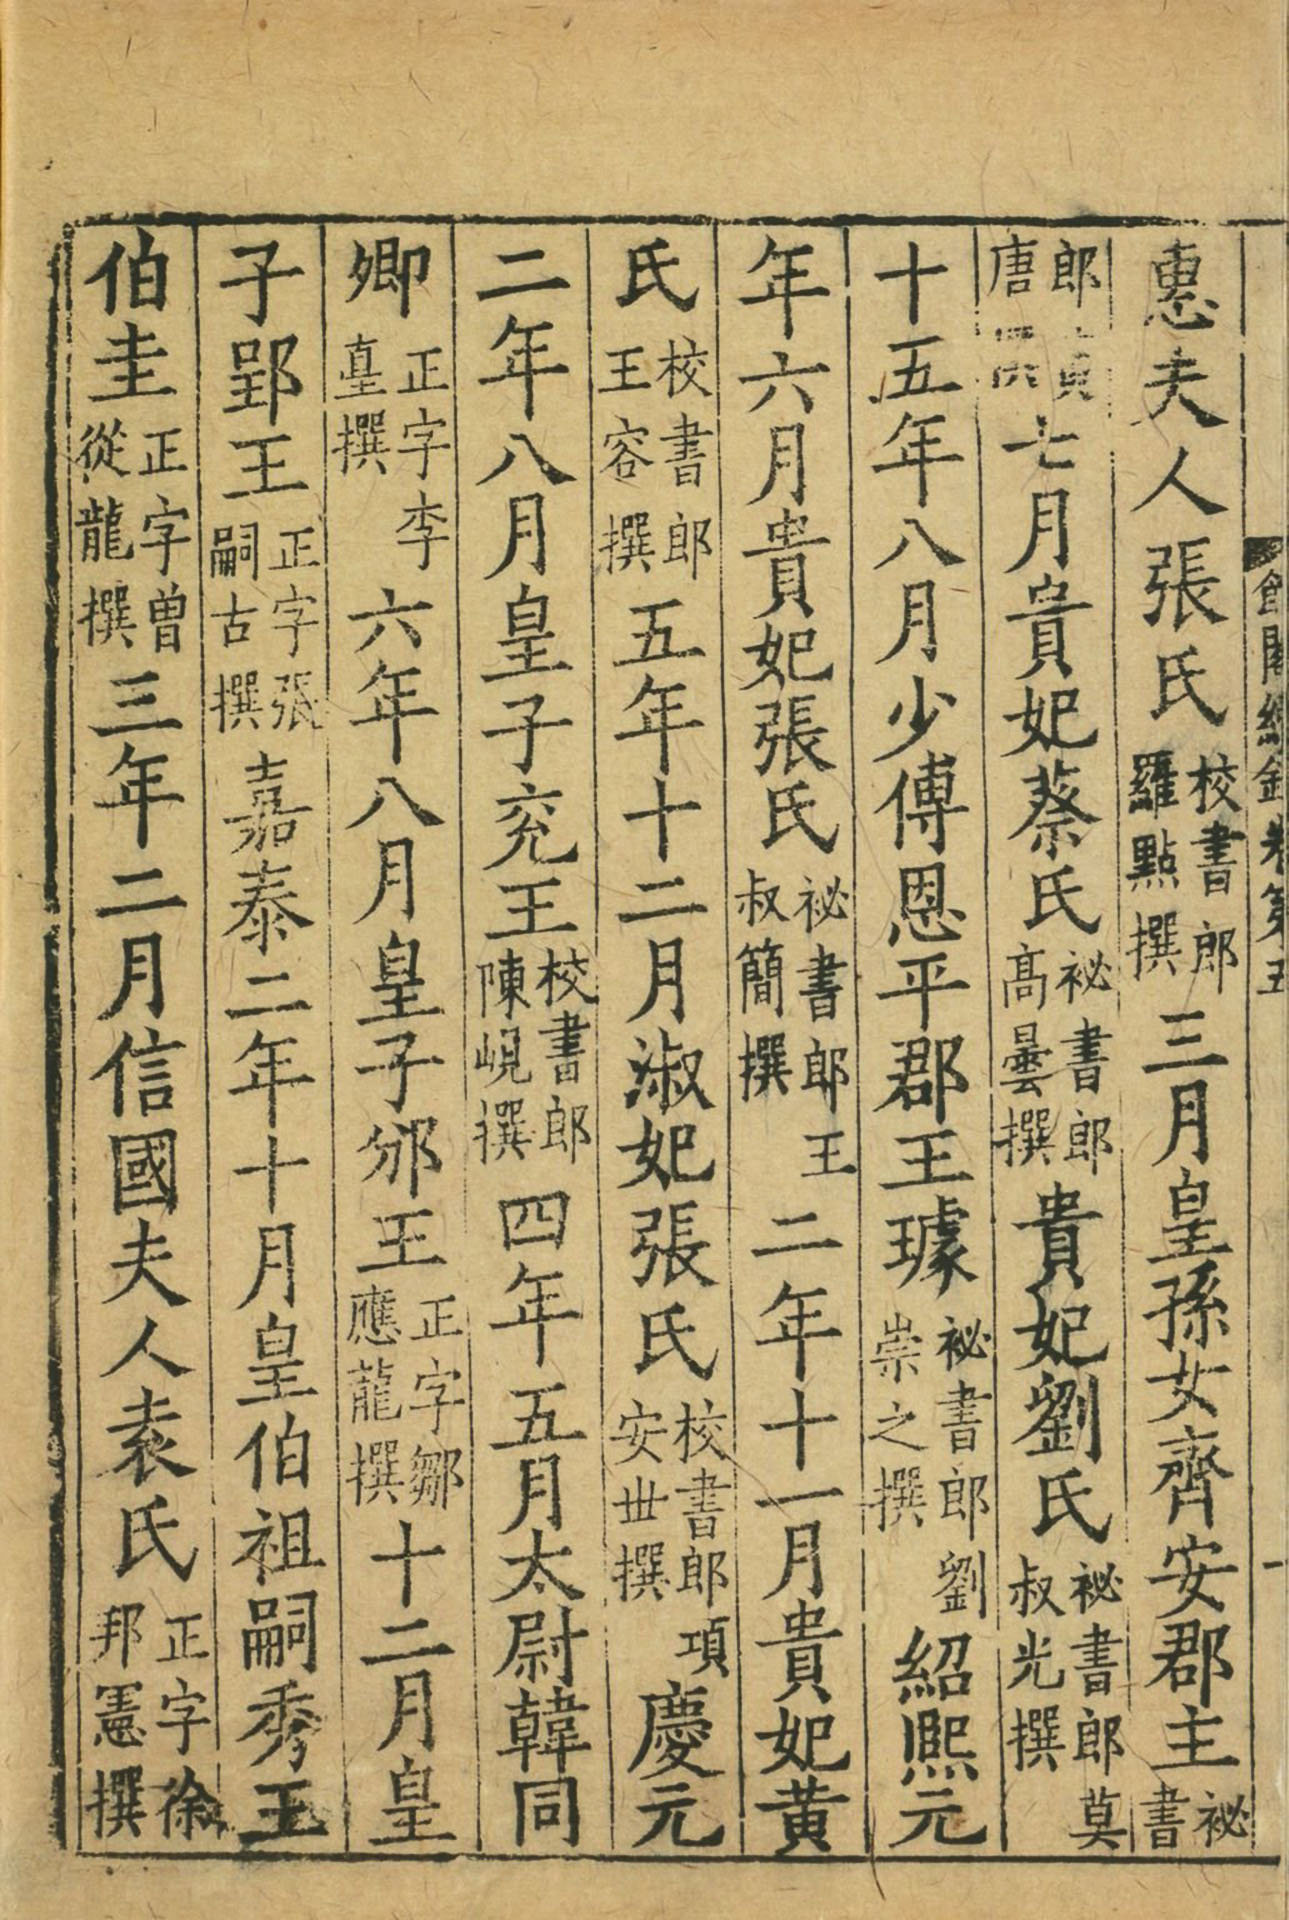 館閣續錄卷第五 一
惠夫人張氏校書郎羅點撰三月皇孫女齊安郡主祕書
郎黃唐撰七月貴妃蔡氏祕書郎高曇撰貴妃劉氏祕書郎莫叔光撰
十五年八月少傅恩平郡王璩祕書郎劉崇之撰紹熙元
年六月貴妃張氏祕書郎王叔簡撰二年十一月貴妃黃
氏校書郎王容撰五年十二月淑妃張氏校書郎項安世撰慶元
二年八月皇子兖王校書郎陳峴撰四年五月太尉韓同
卿正字李臺撰六年八月皇子邠王正字鄒應龍撰十二月皇
子郢王正字張嗣古撰嘉泰二年十月皇伯祖嗣秀王
伯圭正字曾從龍撰三年二月信國夫人袁氏正字徐邦憲撰